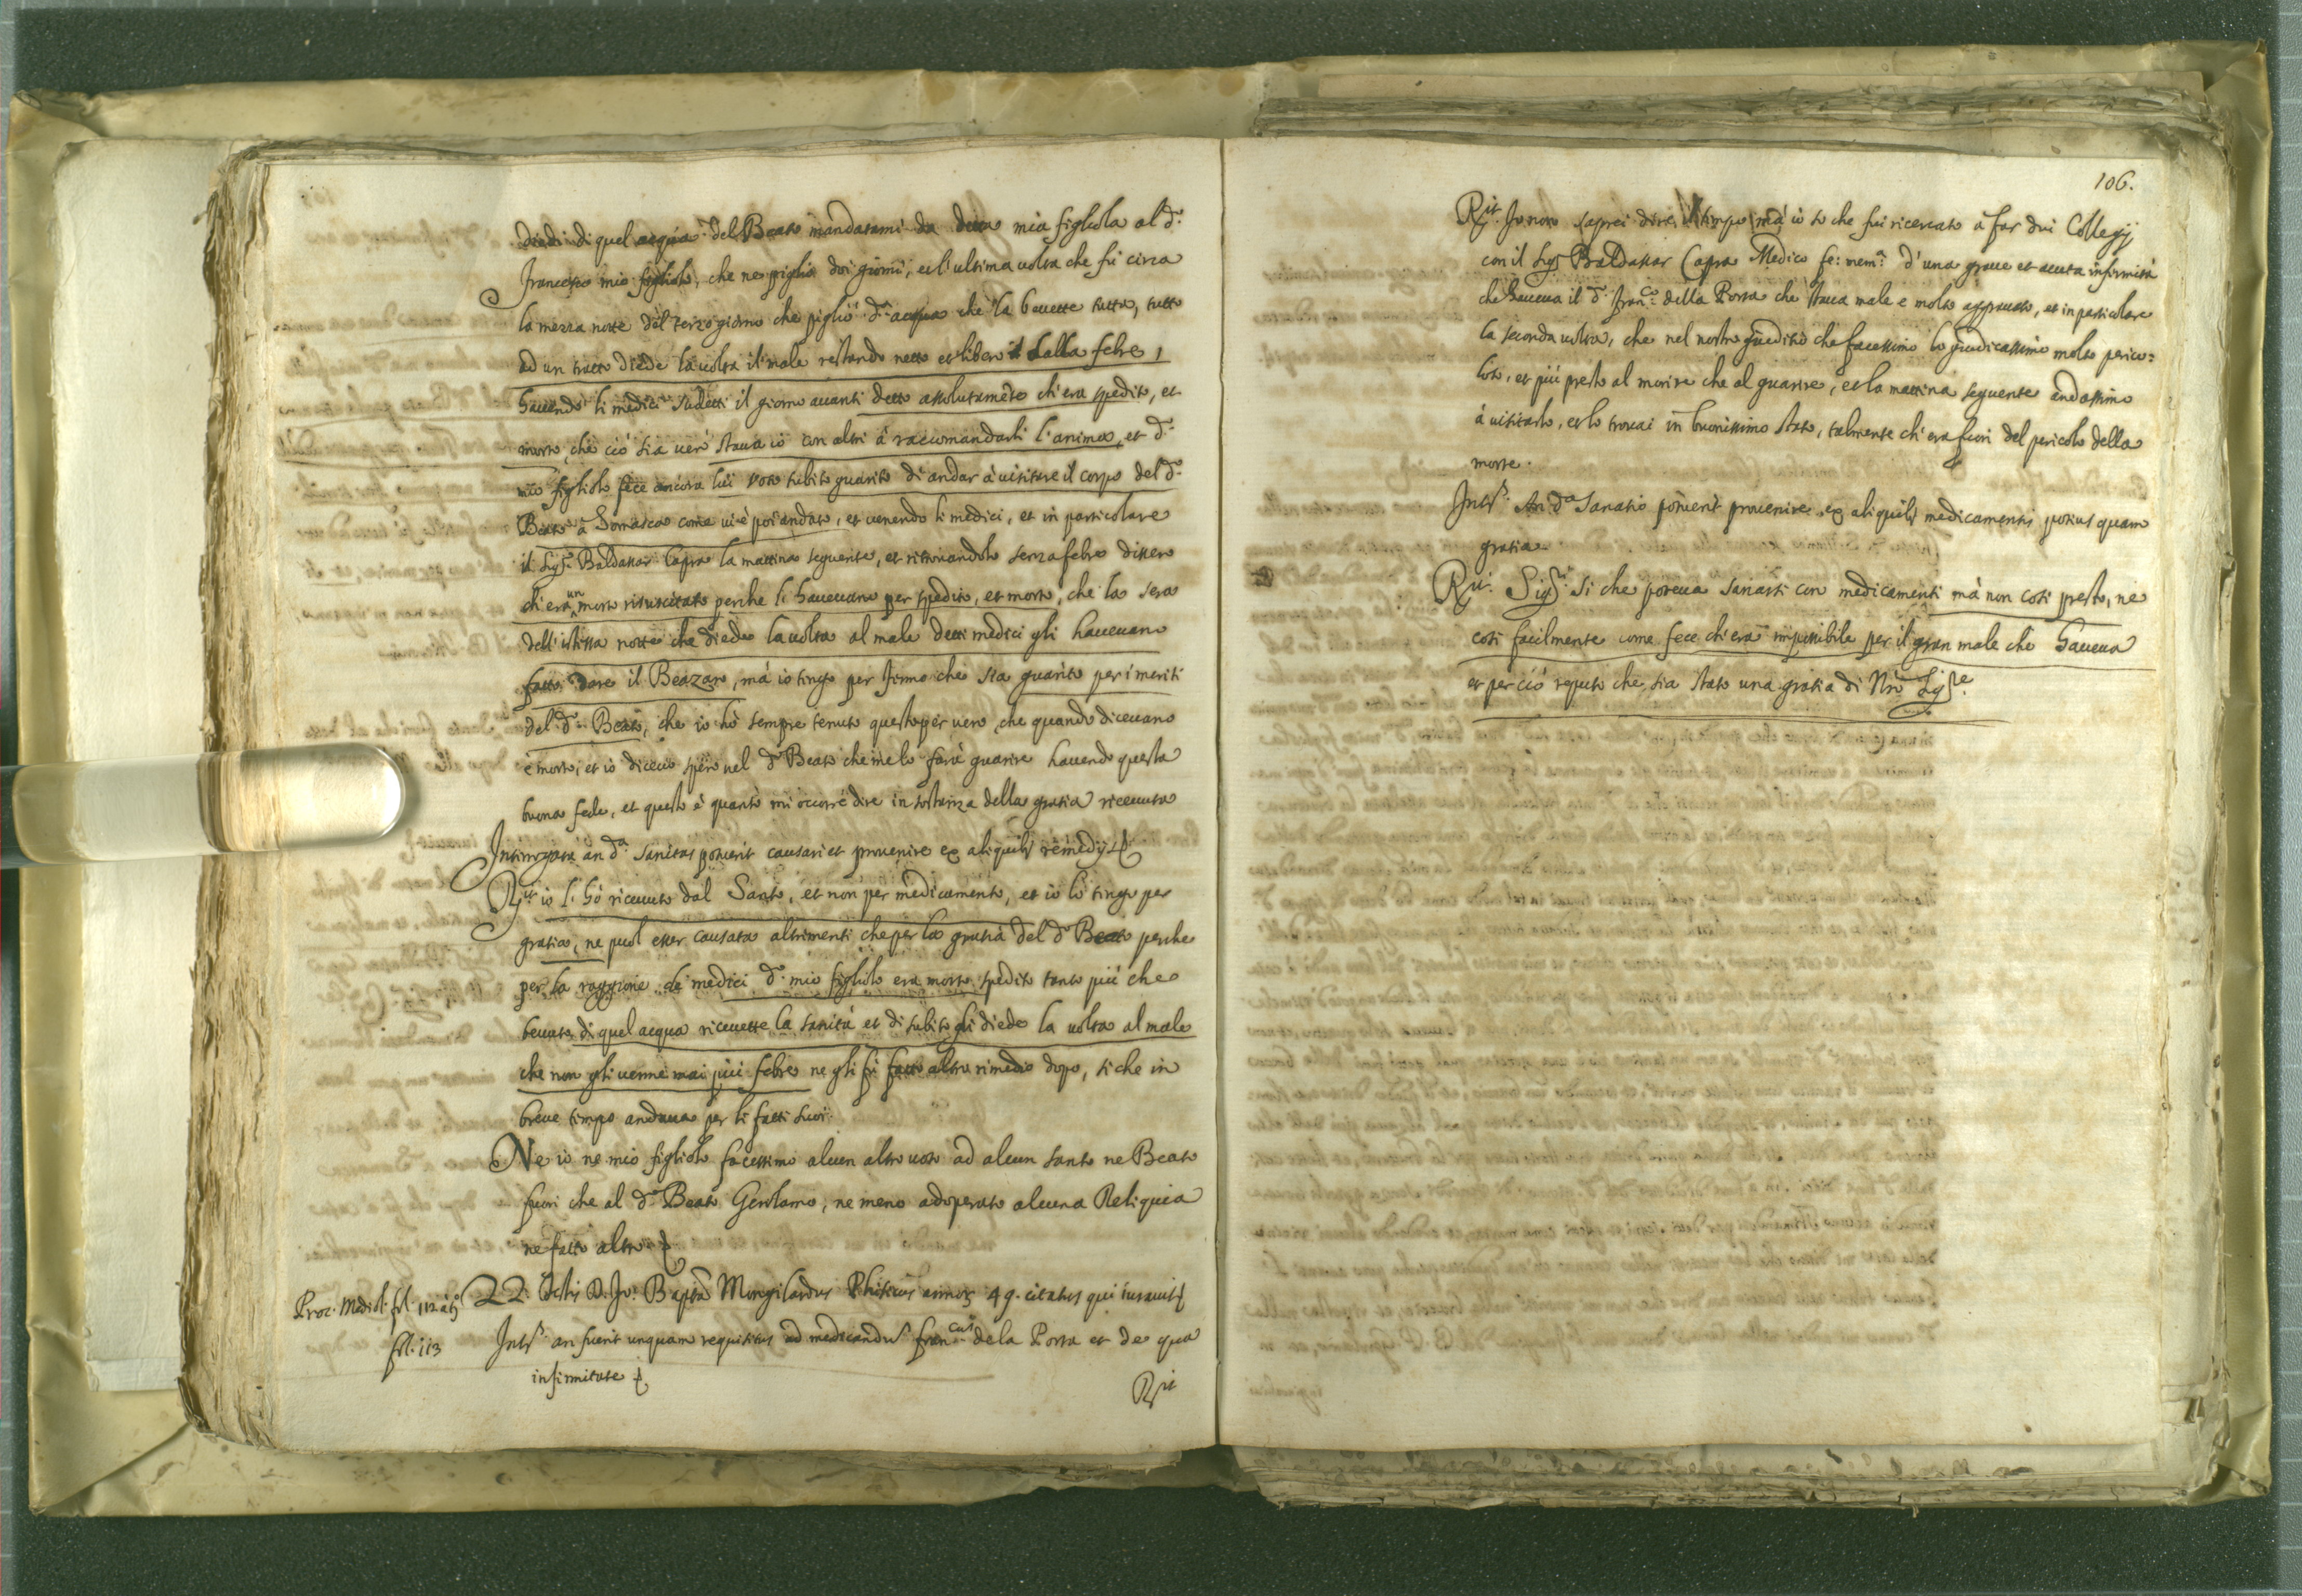 diedi di quel acqua del Beato mandatami da detta mia figliola al d.º
Francesco mio figliolo, che ne pigliò doi giorni, et l'ultima uolta che fù circa
la mezza notte del terzo giorno che pigliò d.ª acqua che la beuette tutta, tutto
ad un tratto diede la uolta il male restando netto et libero dalla febre,
hauendo li medici sudetti il giorno auanti detto assolutamẽte ch'era spedito, et
morto, che ciò sia uero staua io con altri à raccomandarli l'anima, et d.º
mio figliolo fece ancora lui voto subito guarito di andar à uisitare il corpo del d.º
Beato à Somasca come ui è poi andato, et uenendo li medici, et in particolare
il Sig.r Baldassar Capra la mattina seguente, et ritrouandolo senza febre dissero
ch'era un morto risuscitato perche li haueuano per spedito, et morto, che la sera
dell'istessa notte che diede la uolta al male detti medici gli haueuano
fatto dare il Beazaro, mà io tengo per fermo che sia guarito per i meriti
del d.º Beato, che io hò sempre tenuto questo per uero, che quando diceuano
è morto, et io diceuo spero nel d.º Beato che me lo farà guarire hauendo questa
buona fede, et questo è quanto mi occorre dire in sostanza della gratia riceuuta
Interrogata an d.ª sanitas potuerit causari et prouenire ex aliquibj remedijs
Rit io l'hò riceuuto dal Santo, et non per medicamento, et io lo tengo per
gratia, ne puol esser causata altrimenti che per la gratia del d.º Beato perche
per la raggione de medici d.º mio figliolo era morto spedito tanto più che
beuuta di quel acqua riceuette la sanità et di subito gli diede la uolta al male
che non gli uenne mai più febre ne gli fù fatto altro rimedio dopo, si che in
breue tempo andaua per li fatti suoi.
Ne io ne mio figliolo facessimo alcun altro uoto ad alcun santo ne Beato
fuori che al d.º Beato Gerolamo, ne meno adoperato alcuna Reliquia
ne fatto altro
Proc. Mediol. fol. 112 àtº 22. Testis D. Jo: Bapta Mongilardus Phisicus annoꝝ 49. citatus qui iurauit
fol. 113 Intus an fuerit unquam requisitus ad medicandũ Fran.cus de la Porta et de qua
infirmitate
Rit
106.
Rit Io non saprei dire il tempo mà io sò che fui ricercato à far dui Collegij
con il Sig.r Baldassar Capra Medico fe: mem.ª d'una graue et acuta infirmità
che haueua il d.º Fran.co della Porta che staua male e molto aggrauato, et in particolare
la seconda uolta, che nel nostro giuditio che facessimo lo giudicassimo molto perico=
loso, et più presto al morire che al guarire, et la mattina seguente andassimo
à uisitarlo, et lo trouai in buonissimo stato, talmente ch'era fuori del pericolo della
morte.
Intus An d.ª sanatio potuerit prouenire ex aliquibj medicamentis potius quam
gratia.
Rit. Sigr si che poteua sanarsi con medicamenti mà non così presto, ne
così facilmente come fece ch'era impossibile per il gran male che haueua
et per ciò reputo che sia stato una gratia di Nrõ Sigre.